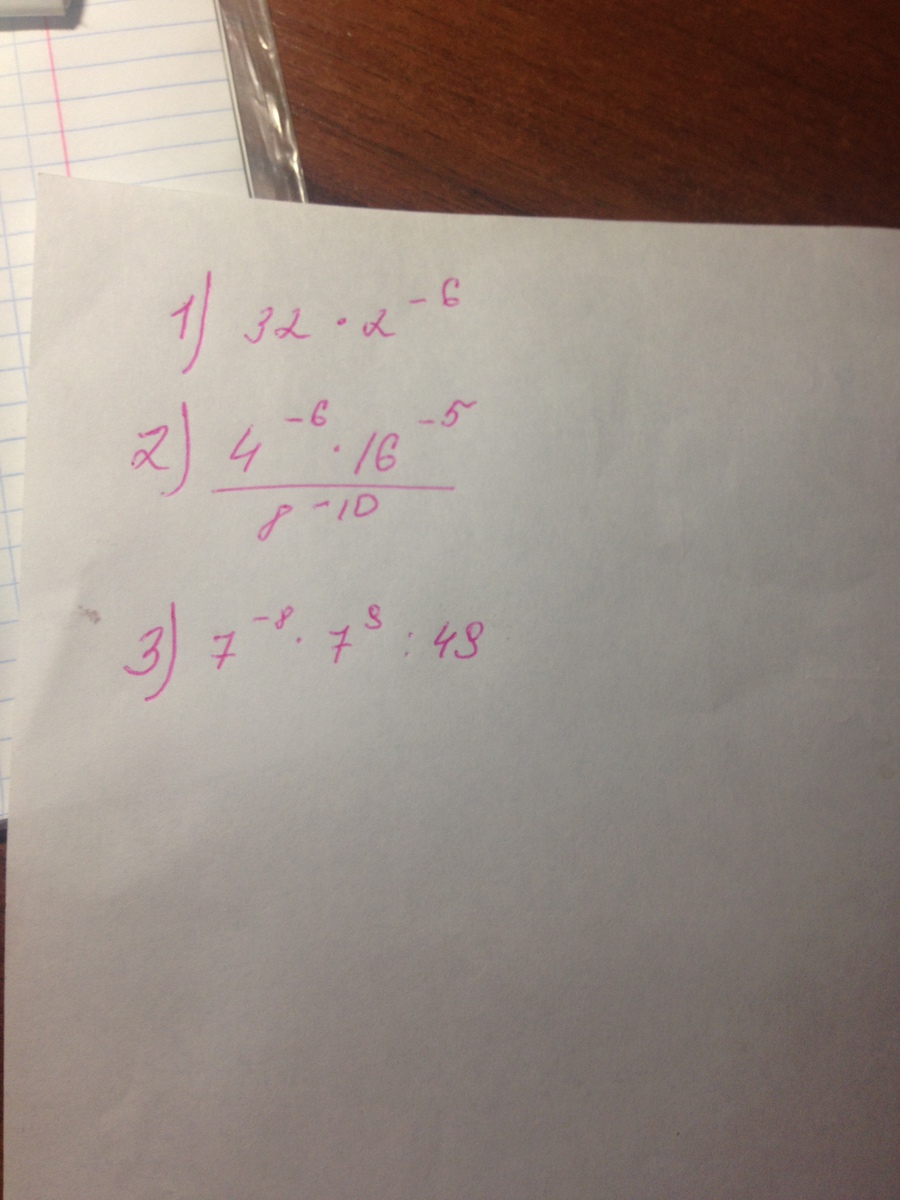 1) 32 · 2⁻⁶
2) 4⁻⁶ · 16⁻⁵
8⁻¹⁰
3) 7⁻⁸ · 7⁹ : 49